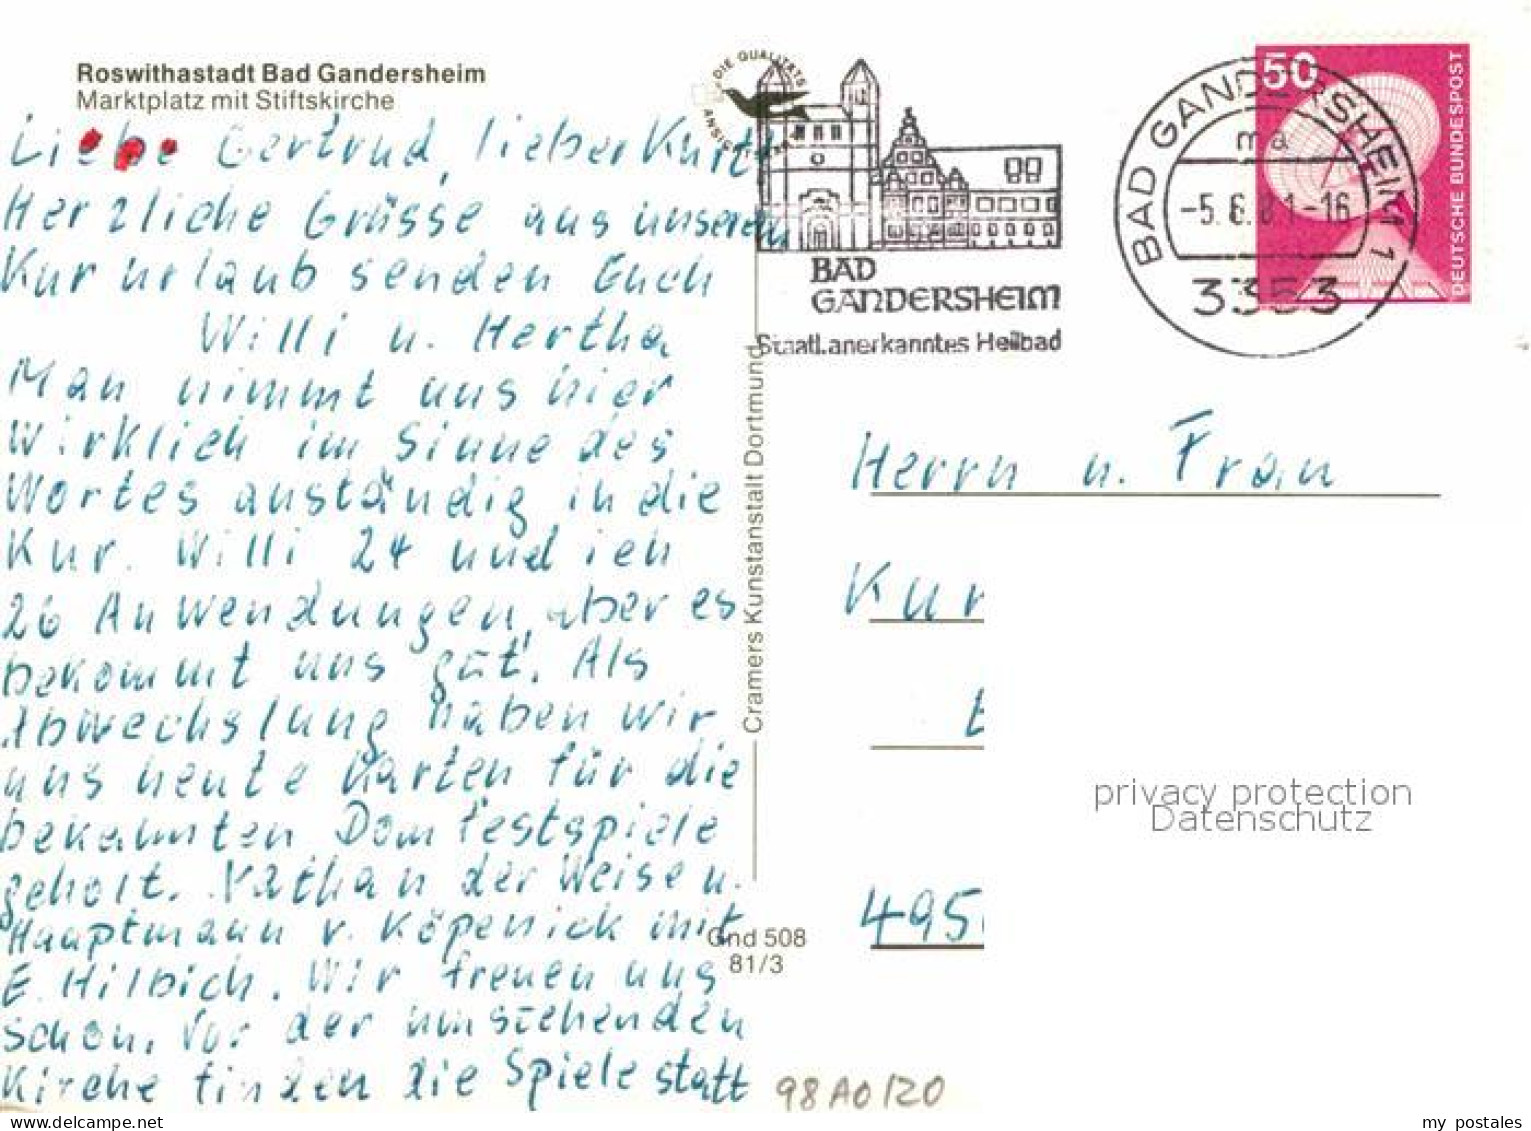 Roswithastadt Bad Gandersheim
Marktplatz mit Stiftskirche
Liebe Gertrud, lieber Kurt
Herzliche Grüsse aus unserem
Kururlaub senden Euch
Willi u. Hertha
Man nimmt uns hier
wirklich im Sinne des
Wortes anständig in die
Kur. Willi 24 und ich
26 Anwendungen, aber es
bekommt uns gut. Als
Abwechslung haben wir
uns heute Karten für die
bekannten Domfestspiele
geholt. Nathan der Weise u.
Hauptmann v. Köpenick mit
E. Hilbich. Wir freuen uns
schon. Vor der umstehenden
Kirche finden die Spiele statt
DIE QUALITÄTS
BAD
GANDERSHEIM
Staatl. anerkanntes Heilbad
BAD GANDERSHEIM 1
ma
-5.6.81-16
3353
50
DEUTSCHE BUNDESPOST
Cramers Kunstanstalt Dortmund
Gnd 508
81/3
Herrn u. Frau
Kur
495
privacy protection
Datenschutz
98A0120
www.delcampe.net
my postales